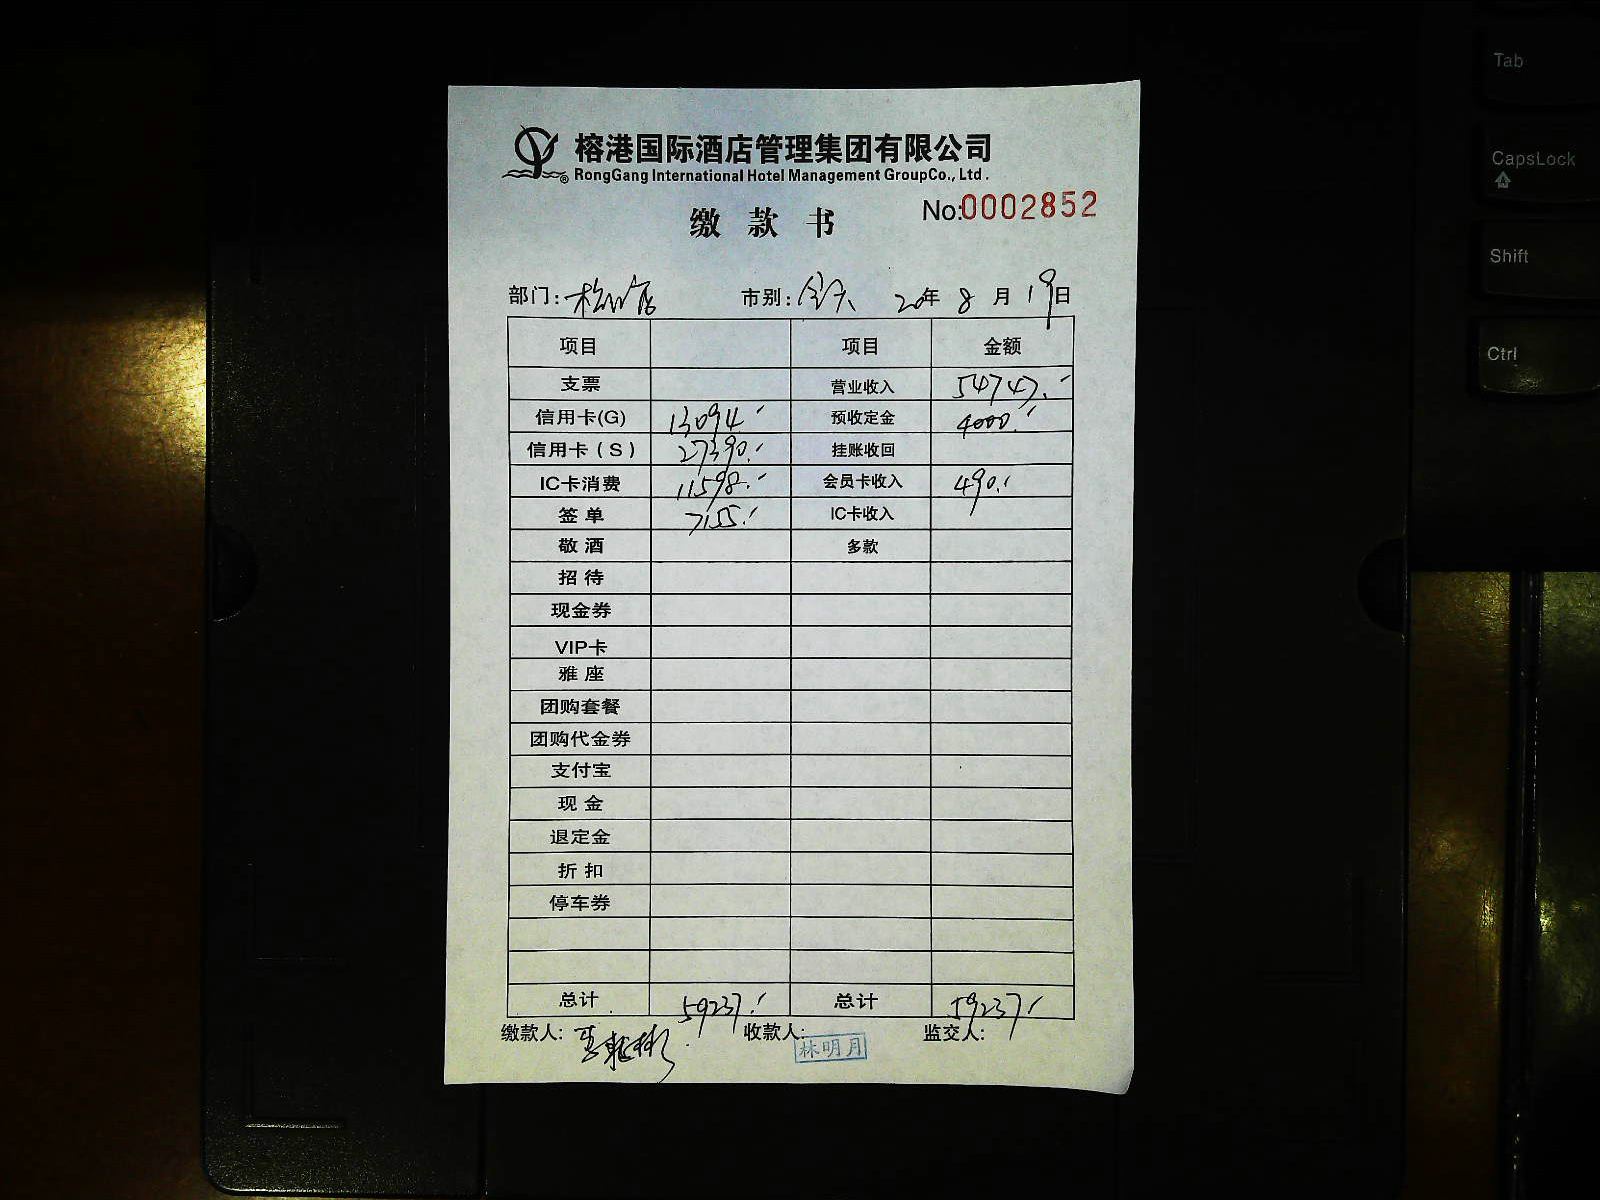 榕港国际酒店管理集团有限公司
RongGang International Hotel Management GroupCo., Ltd.
No:0002852
缴款书
部门: 市别: 全天 20年 8月 19日
项目 项目 金额
支票 营业收入 54747.-
信用卡(G) 13094.- 预收定金 4000.-
信用卡(S) 27390.- 挂账收回
IC卡消费 11598.- 会员卡收入 490.-
签单 7155.- IC卡收入
敬酒 多款
招待
现金券
VIP卡
雅座
团购套餐
团购代金券
支付宝
现金
退定金
折扣
停车券
总计 59237.- 总计 59237.-
缴款人: 收款人: 林明月 监交人:
Tab
CapsLock
Shift
Ctrl